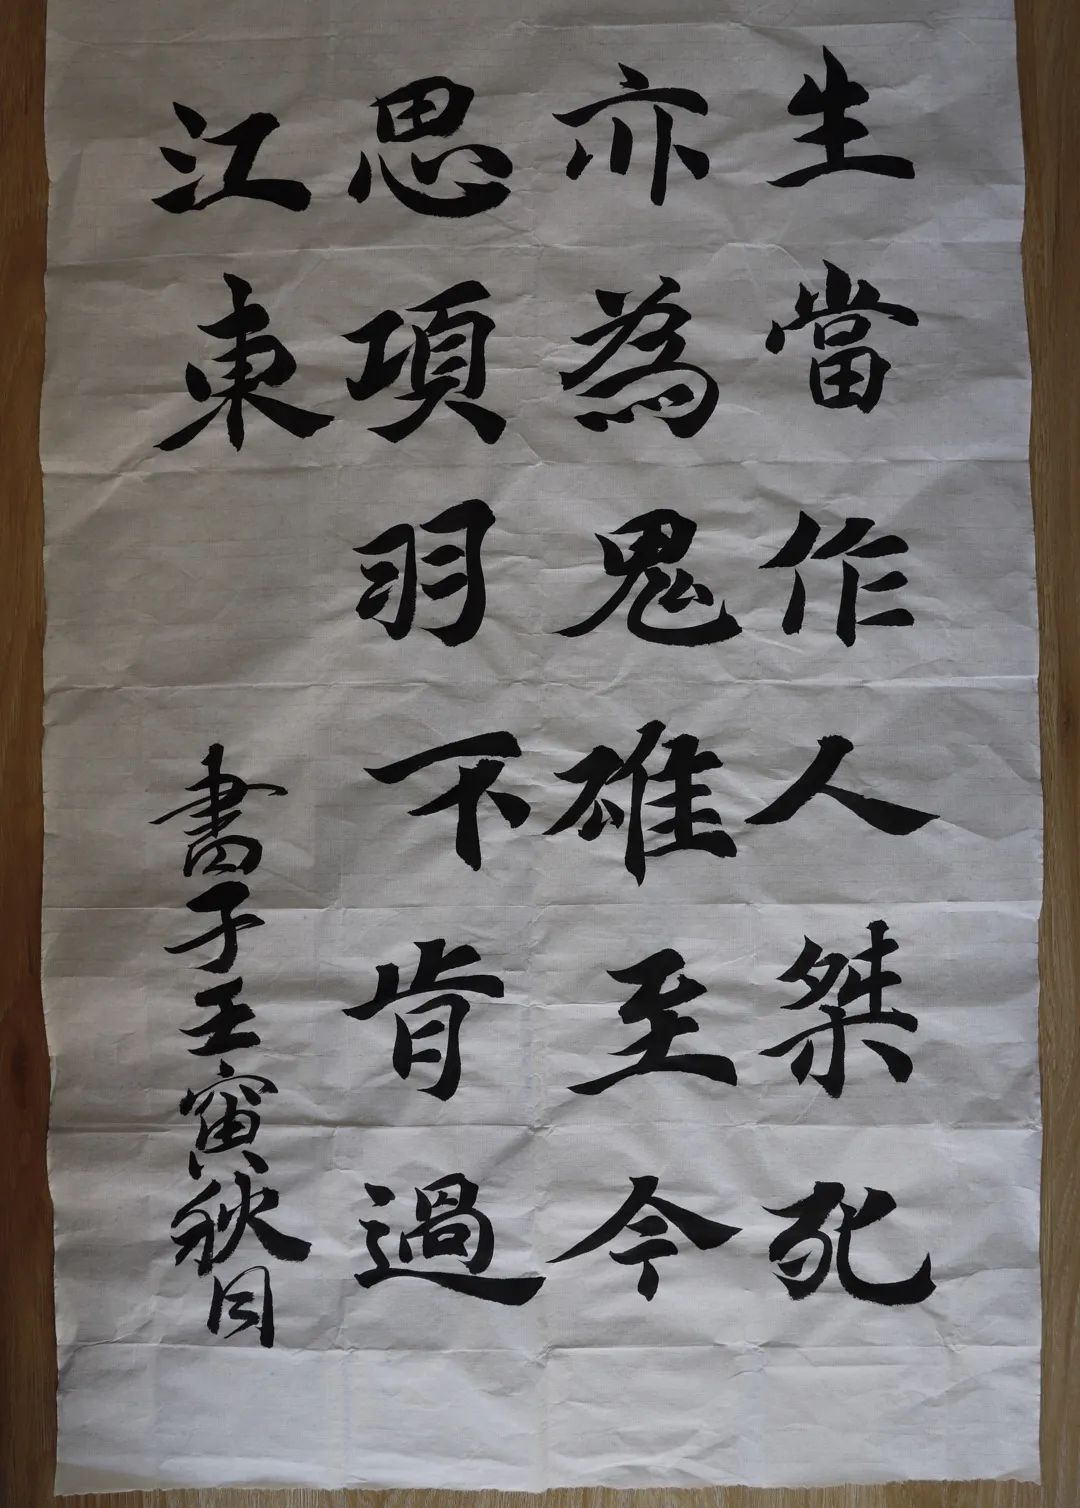 生當作人桀死
亦為鬼雄至今
思項羽不肯過
江東
書于王寅秋日